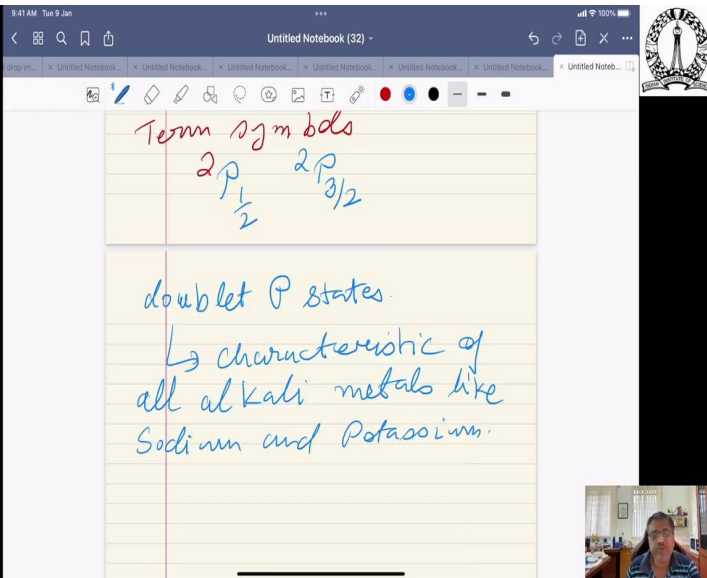 9:41 AM Tue 9 Jan
100%
Untitled Notebook (32)
drop im... × Untitled Notebook... × Untitled Notebook... × Untitled Notebook... × Untitled Notebook... × Untitled Notebook... × Untitled Notebook... × Untitled Noteb...
Term symbols
²P₁/₂ ²P₃/₂
doublet P states.
↳ characteristic of
all alkali metals like
Sodium and Potassium.